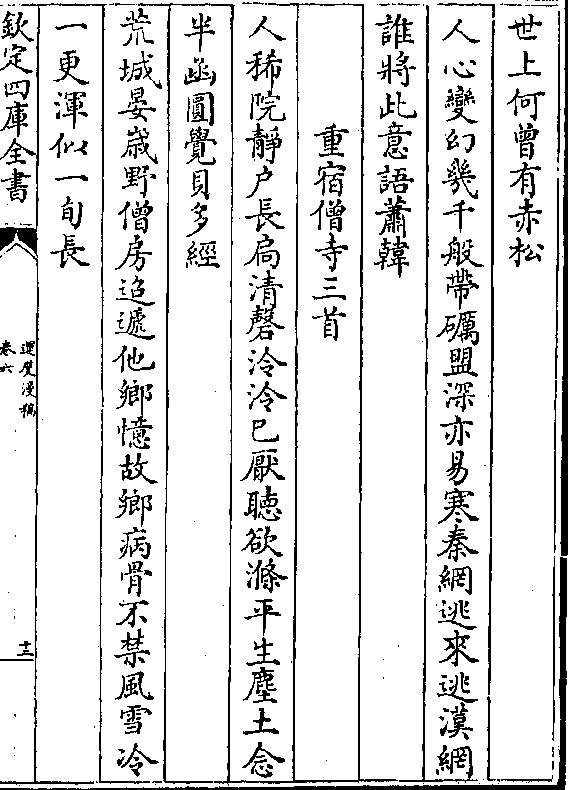 世上何曾有赤松
人心變幻幾千般帶礪盟深亦易寒秦網逃來逃漢網
誰將此意語蕭韓
重宿僧寺三首
人稀院靜户長扃清磬泠泠已厭聴欲滌平生塵土念
半函圓覺貝多經
荒城晏嵗野僧房迢遞他鄉憶故鄉病骨不禁風雪冷
一更渾似一旬長
欽定四庫全書
還屋漫稿
卷六
十三